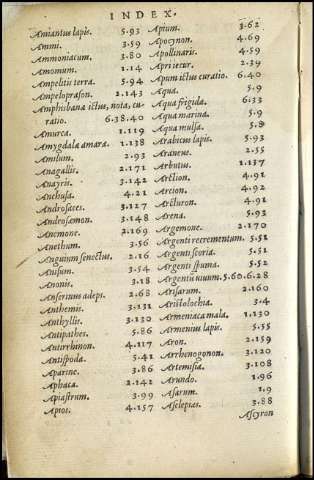 INDEX.
Amiantus lapis. 5.93
Ammi. 3.59
Ammoniacum. 3.80
Amomum. 1.14
Ampelitis terra. 5.94
Ampeloprason. 2.143
Amphisbæna ictus, nota, cu-
ratio. 6.38.40
Amurca. 1.119
Amygdalæ amaræ. 1.138
Amilum. 2.93
Anagallis. 2.171
Anagyris. 3.142
Anchusa. 4.21
Androsaces. 3.127
Androsæmon. 3.148
Anemone. 2.169
Anethum. 3.56
Anguium senectus. 2.16
Anisum. 3.54
Anonis. 3.18
Anserinus adeps. 2.68
Anthemis. 3.131
Anthyllis. 3.130
Antipathes. 5.86
Antirrhinon. 4.117
Antispoda. 5.41
Aparine. 3.86
Aphaca. 2.141
Apiastrum. 3.99
Apios. 4.157
Apium. 3.62
Apocynon. 4.69
Apollinaris. 4.59
Apri iecur. 2.39
Apum ictus curatio. 6.40
Aqua. 5.9
Aqua frigida. 6.33
Aqua marina. 5.9
Aqua mulsa. 5.8
Arabicus lapis. 5.93
Araneus. 2.55
Arbutus. 1.137
Arction. 4.91
Arcion. 4.92
Arcturon. 4.91
Arena. 5.93
Argemone. 2.170
Argenti recrementum. 5.51
Argenti scoria. 5.51
Argenti spuma. 5.52
Argentū uiuum. 5.60.6.28
Arisarum. 2.160
Aristolochia. 3.4
Armeniaca mala. 1.130
Armenius lapis. 5.55
Aron. 2.159
Arrhenogonon. 3.120
Artemisia. 3.108
Arundo. 1.96
Asarum. 1.9
Asclepias. 3.88
Ascyron